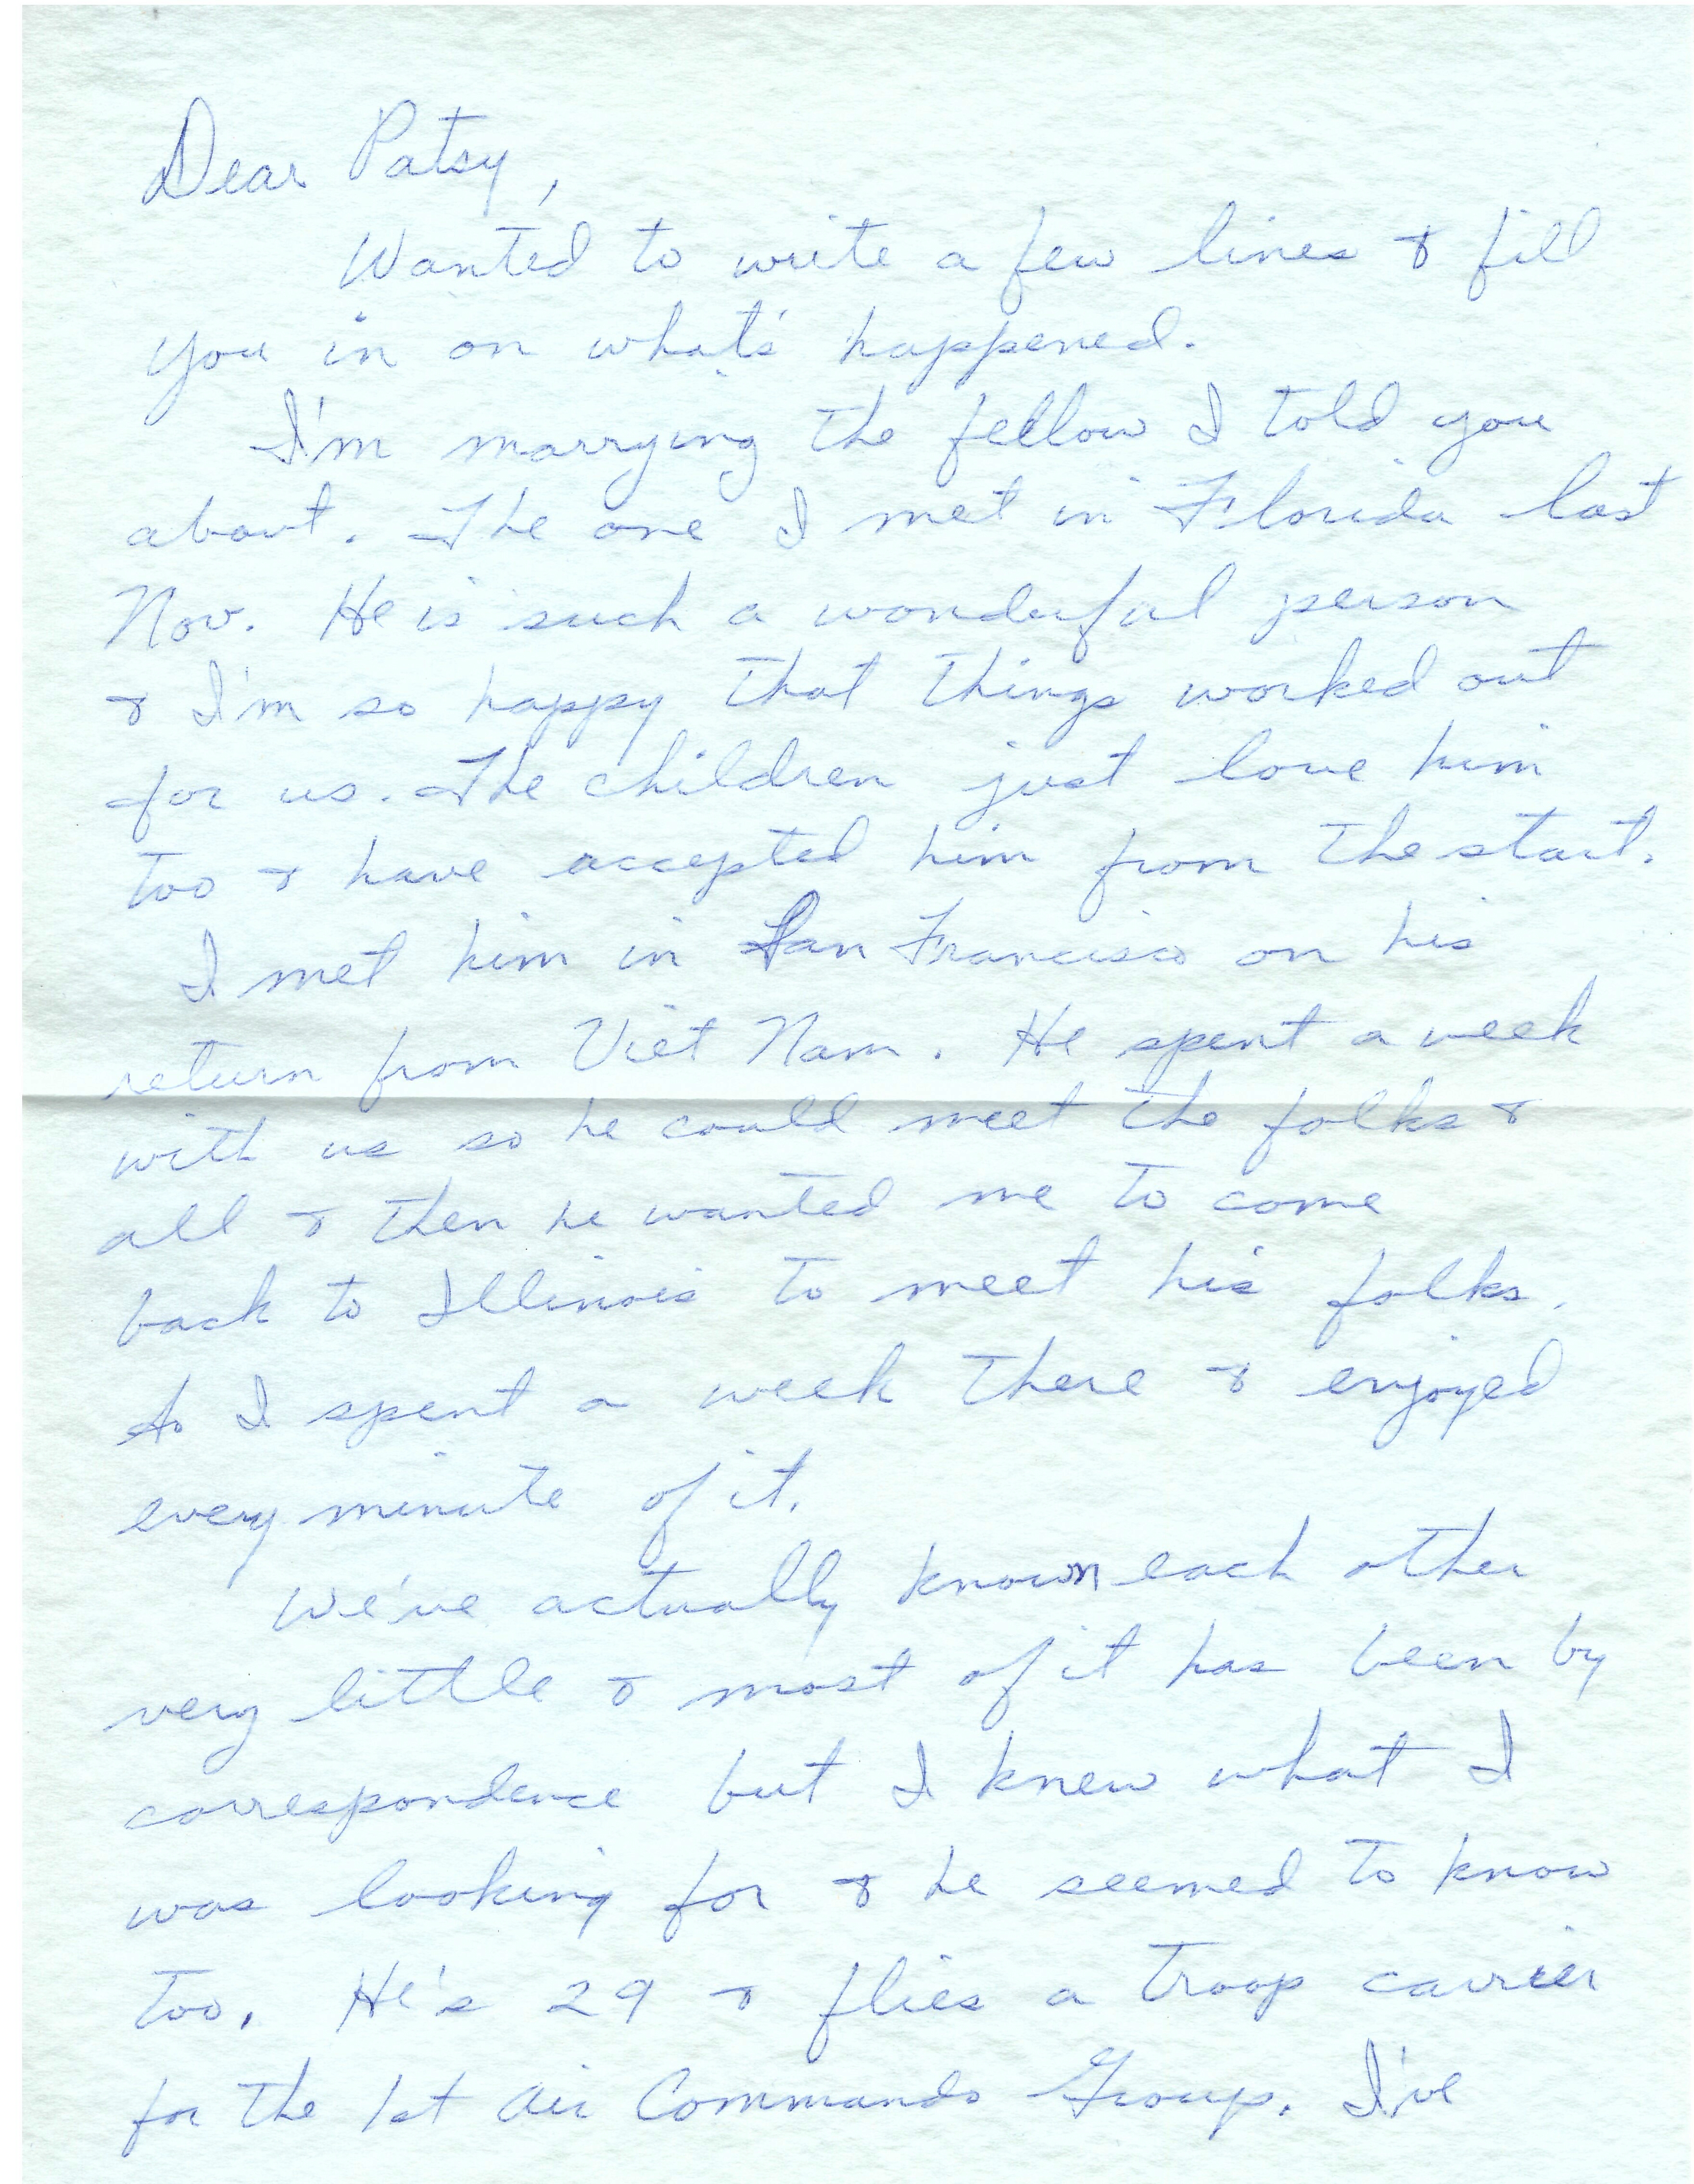 Dear Patsy,
Wanted to write a few lines & fill
you in on what's happened.
I'm marrying the fellow I told you
about. The one I met in Florida last
Nov. He is such a wonderful person
& I'm so happy that things worked out
for us. The children just love him
too & have accepted him from the start.
I met him in San Francisco on his
return from Viet Nam. He spent a week
with us so he could meet the folks &
all & then he wanted me to come
back to Illinois to meet his folks.
So I spent a week there & enjoyed
every minute of it.
We've actually known each other
very little & most of it has been by
correspondence but I knew what I
was looking for & he seemed to know
too. He's 29 & flies a troop carrier
for the 1st Air Commando Group. I've